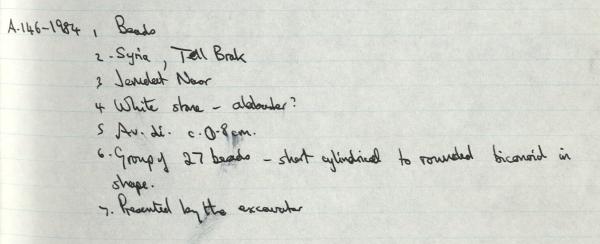 A.146-1984, 1 Beads
2. Syria, Tell Brak
3 Jemdet Nasr
4 White stone - alabaster?
5 Av. di. c. 0.8cm.
6. Group of 27 beads - short cylindrical to rounded biconoid in
shape.
7. Presented by the excavator